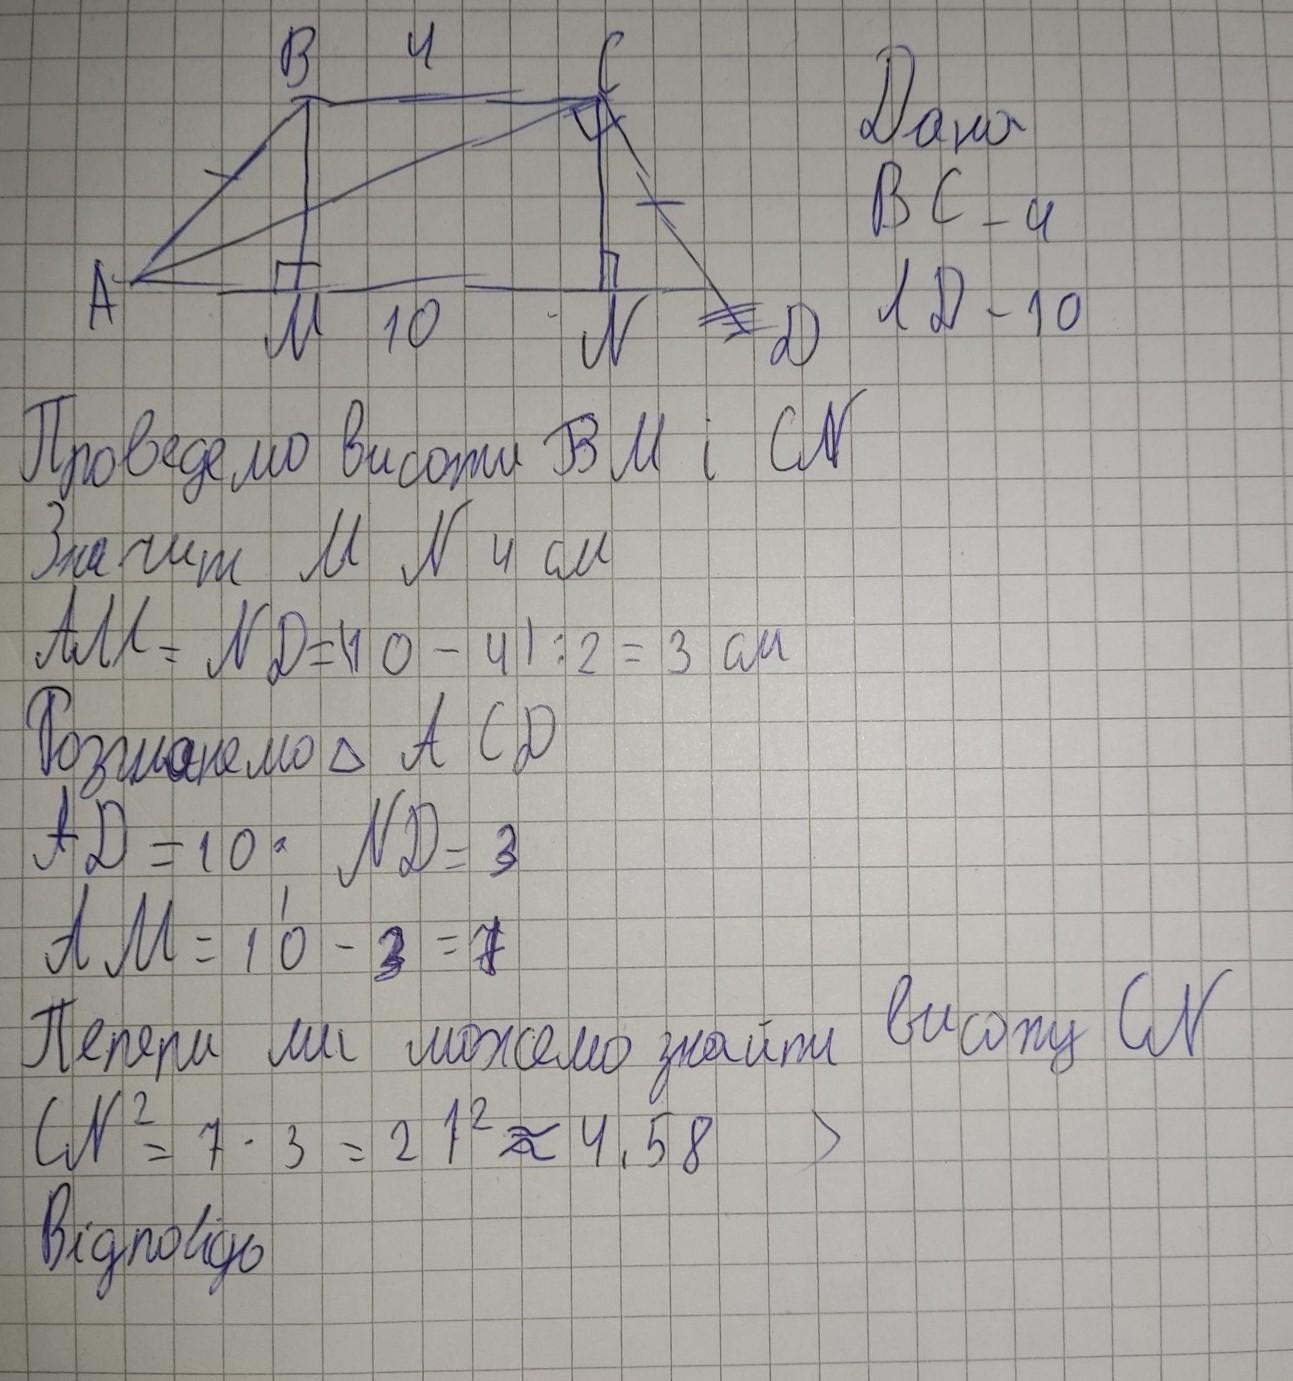 B 4 C
Дано
BC - 4
AD - 10
A M 10 N D
Проведемо висоти BM і CN
Значит M N 4 см
AM = ND = (10 - 4) : 2 = 3 см
Розглянемо △ A C D
AD = 10 ND = 3
AM = 10 - 3 = 7
Тепери ми можемо знайти висоту CN
CN² = 7 · 3 = 21² ≈ 4,58
Відповідь